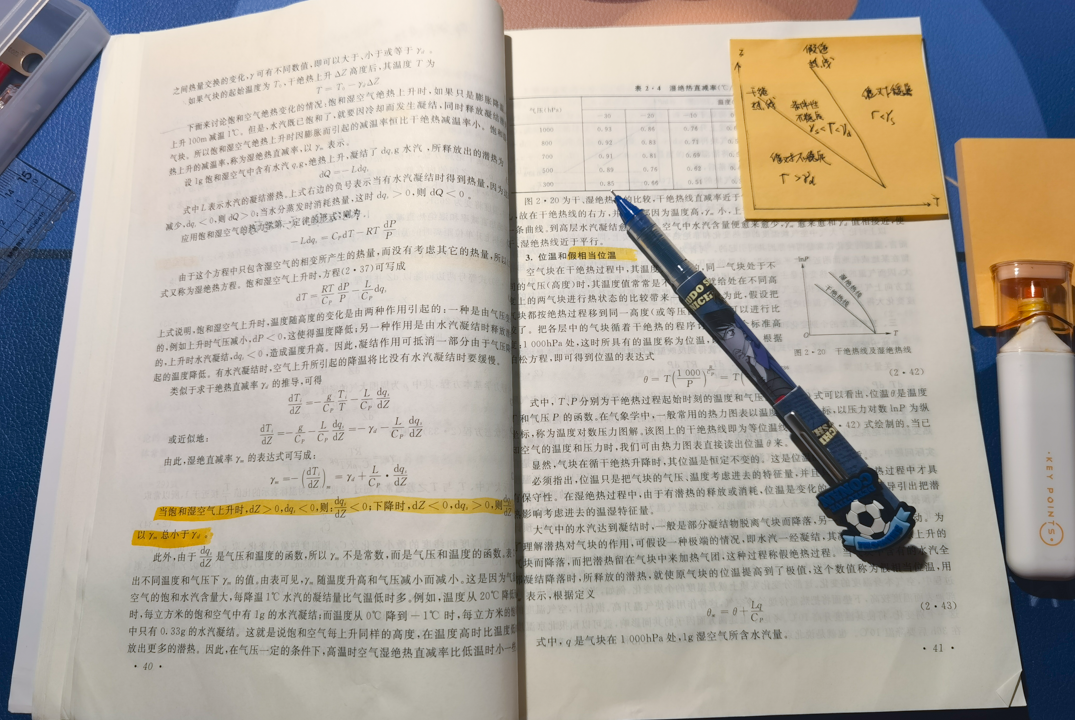 之间热量交换的变化,γ可有不同数值,即可以大于、小于或等于γd。
如果气块的起始温度为T₀,干绝热上升ΔZ高度后,其温度T为
T = T₀ − γdΔZ
下面来讨论饱和空气绝热变化的情况,饱和湿空气绝热上升时,如果只是膨胀降
上升100m减温1℃。但是,水汽既已饱和了,就要因冷却而发生凝结,同时释放凝结
气块。所以饱和湿空气绝热上升时因膨胀而引起的减温率恒比干绝热减温率小。饱和
热上升的减温率,称为湿绝热直减率,以γm表示。
设1g饱和湿空气中含有水汽qsg,绝热上升,凝结了dqsg水汽,所释放出的潜热为
dQ = −Ldqs
式中L表示水汽的凝结潜热。上式右边的负号表示当有水汽凝结时得到热量,因为
减少,dqs<0,则dQ>0;当水分蒸发时消耗热量,这时dqs>0,则dQ<0。
应用饱和湿空气的热力学第一定律的形式,则为
−Ldqs = CpdT − RT dP/P
由于这个方程中只包含湿空气的相变所产生的热量,而没有考虑其它的热量,所以
式又称为湿绝热方程。饱和湿空气上升时,方程(2·37)可写成
dT = RT/Cp dP/P − L/Cp dqs
上式说明,饱和湿空气上升时,温度随高度的变化是由两种作用引起的:一种是由气压
的,例如上升时气压减小,dP<0,这使得温度降低;另一种作用是由水汽凝结时释放潜
的,上升时水汽凝结,dqs<0,造成温度升高。因此,凝结作用可抵消一部分由于气压
起的温度降低。有水汽凝结时,空气上升所引起的降温将比没有水汽凝结时要缓慢。
类似于求干绝热直减率γd的推导,可得
dTi/dZ = −g/Cp Ti/T − L/Cp dqs/dZ
或近似地: dTi/dZ = −g/Cp − L/Cp dqs/dZ = −γd − L/Cp dqs/dZ
由此,湿绝热直减率γm的表达式可写成:
γm = −(dTi/dZ)m = γd + L/Cp · dqs/dZ
当饱和湿空气上升时,dZ>0,dqs<0,则:dqs/dZ<0;下降时,dZ<0,dqs>0,则dqs/dZ
以γm总小于γd。
此外,由于dqs/dZ是气压和温度的函数,所以γm不是常数,而是气压和温度的函数,
出不同温度和气压下γm的值。由表可见,γm随温度升高和气压减小而减小。这是因为气
空气的饱和水汽含量大,每降温1℃水汽的凝结量比气温低时多。例如,温度从20℃降低
时,每立方米的饱和空气中有1g的水汽凝结;而温度从0℃降到−1℃时,每立方米的
中只有0.33g的水汽凝结。这就是说饱和空气每上升同样的高度,在温度高时比温度
放出更多的潜热。因此,在气压一定的条件下,高温时空气湿绝热直减率比低温时小一
· 40 ·
表2·4 湿绝热直减率(℃
气压(hPa) 温度
−30 −20 −10
1000 0.93 0.86
800 0.92 0.83 0.71
700 0.91 0.81 0.69
500 0.89 0.76 0.62
300 0.85 0.66 0.51
图2·20为干、湿绝热线的比较,干绝热线直减率近于
,故在干绝热线的右方,并且下部因为温度高,γm小,上
条曲线。到高层水汽凝结
,湿绝热线近于平行。
3. 位温和假相当位温
空气块在干绝热过程中,其温度 同一气块处于不
的气压(高度)时,其温度值常常是不 就给处在不同高
上的两气块进行热状态的比较带来一 为此,假设把
块都按绝热过程移到同一高度(或等压 可以进行比
了。把各层中的气块循着干绝热的程序 标准高
1 000hPa处,这时所具有的温度称为位温, 根据
松方程,即可得到位温的表达式
θ = T(1 000/P) = T( (2·42)
式中,T、P分别为干绝热过程起始时刻的温度和气压 式可以看出,位温θ是温度
和气压P的函数。在气象学中,一般常用的热力图表以温度 标,以压力对数lnP为纵
标,称为温度对数压力图解。该图上的干绝热线即为等位温线 ·42)式绘制的。当已
空气的温度和压力时,我们可由热力图表直接读出位温θ来。
显然,气块在循干绝热升降时,其位温是恒定不变的。这是位
必须指出,位温只是把气块的气压、温度考虑进去的特征量,并且 热过程中才具
保守性。在湿绝热过程中,由于有潜热的释放或消耗,位温是变化的 导引出把潜
影响考虑进去的温湿特征量。
大气中的水汽达到凝结时,一般是部分凝结物脱离气块而降落,另一 为
理解潜热对气块的作用,可假设一种极端的情况,即水汽一经凝结,其 上升的
块而降落,而把潜热留在气块中来加热气团,这种过程称假绝热过程。当 水汽全
凝结降落时,所释放的潜热,就使原气块的位温提高到了极值,这个数值称为假相当位温,用
表示,根据定义
θ = θ + Lq/Cp (2·43)
式中,q是气块在1 000hPa处,1g湿空气所含水汽量。
· 41 ·
lnP
湿绝热线
干绝热线
T
0
图2·20 干绝热线及湿绝热线
Z
假绝热线
干绝热线
条件性不稳定
γs<Γ<γd
绝对稳定
Γ<γs
绝对不稳定
Γ>γd
T
15
KEY POINTS